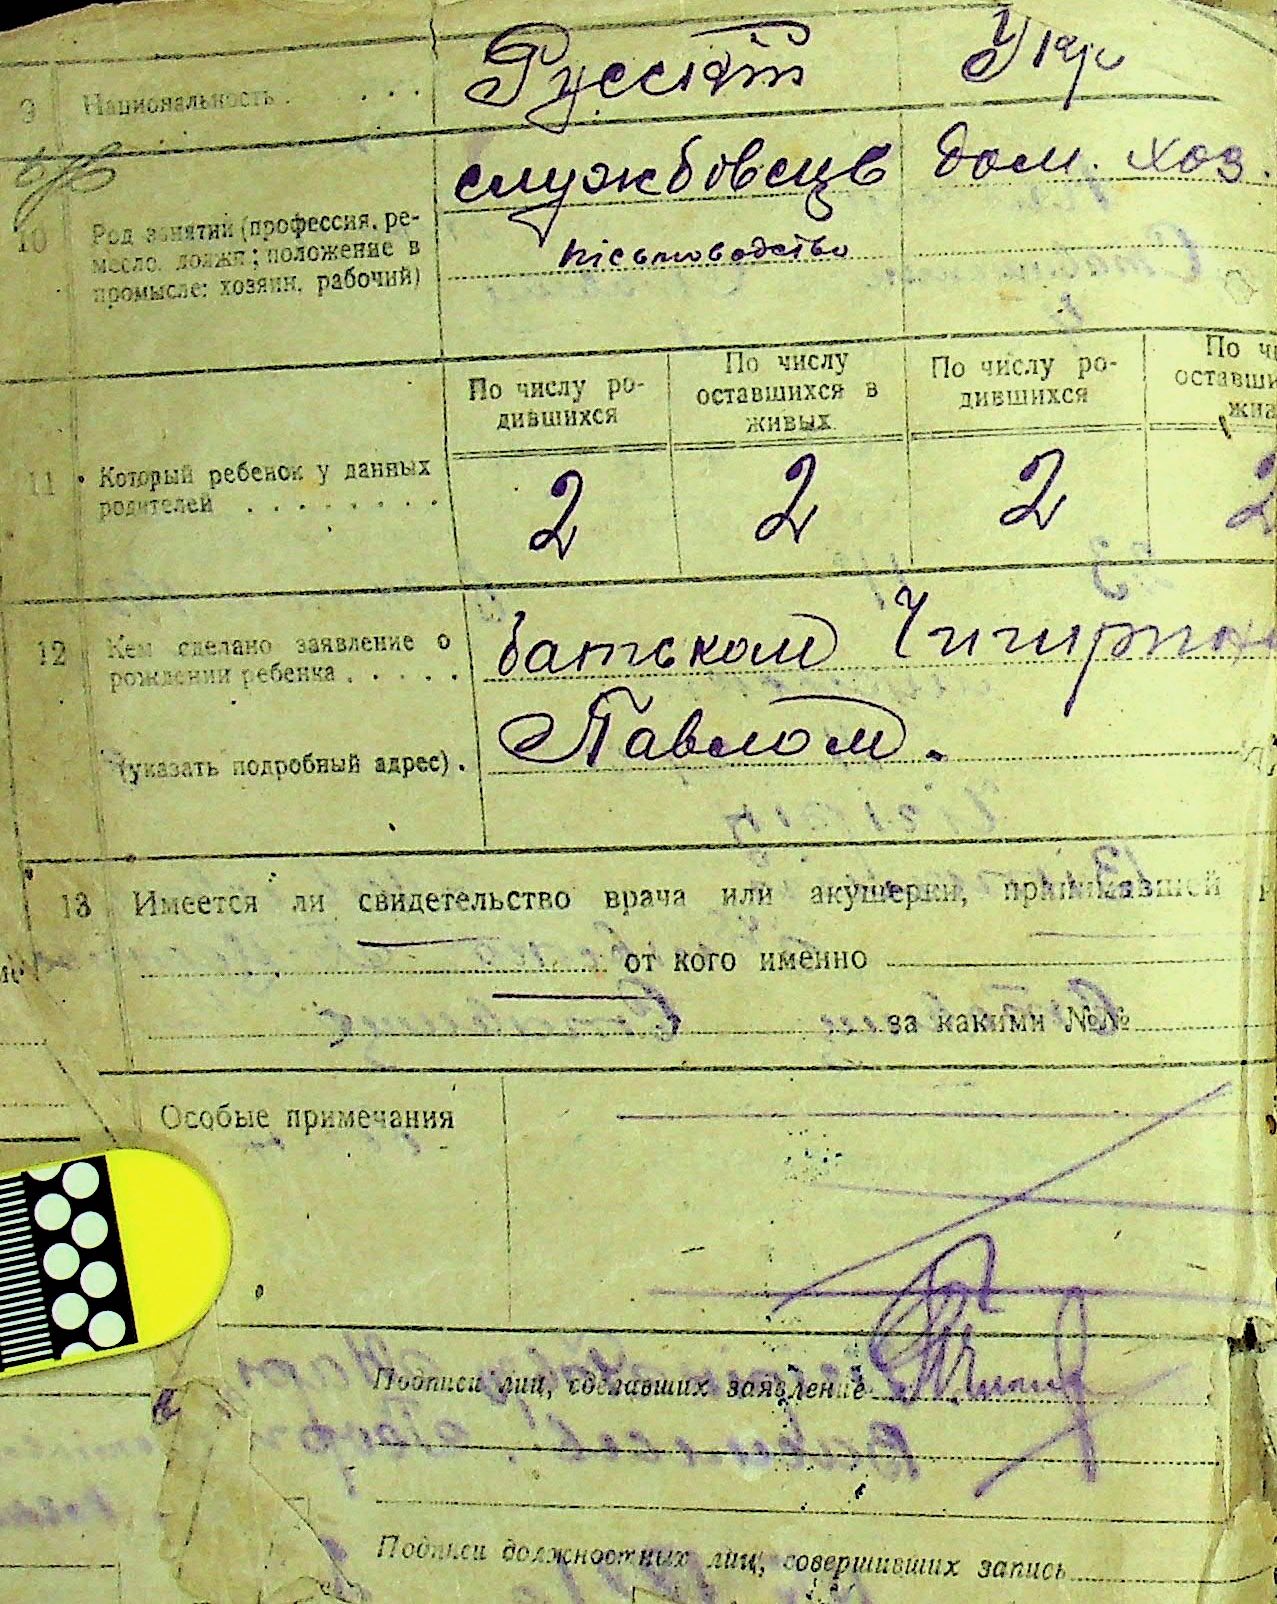 9 Национальность . . . . Русский Укр
службовець дом. хоз.
10 Род занятий (профессия, ре-
месло, должн; положение в
промысле: хозяин, рабочий)
пісьмоводство
По числу ро-
дившихся
По числу
оставшихся в
живых
По числу ро-
дившихся
По чи
оставши
жив
11 Который ребенок у данных
родителей . . . . . . . .
2 2 2 2
12 Кем сделано заявление о
рождении ребенка . . . . .
батьком
Павлом.
(указать подробный адрес) .
13 Имеется ли свидетельство врача или акушерки, принимавшей р
от кого именно
за какими №№
Особые примечания
Подписи лиц, сделавших заявление
Подписи должностных лиц, совершивших запись